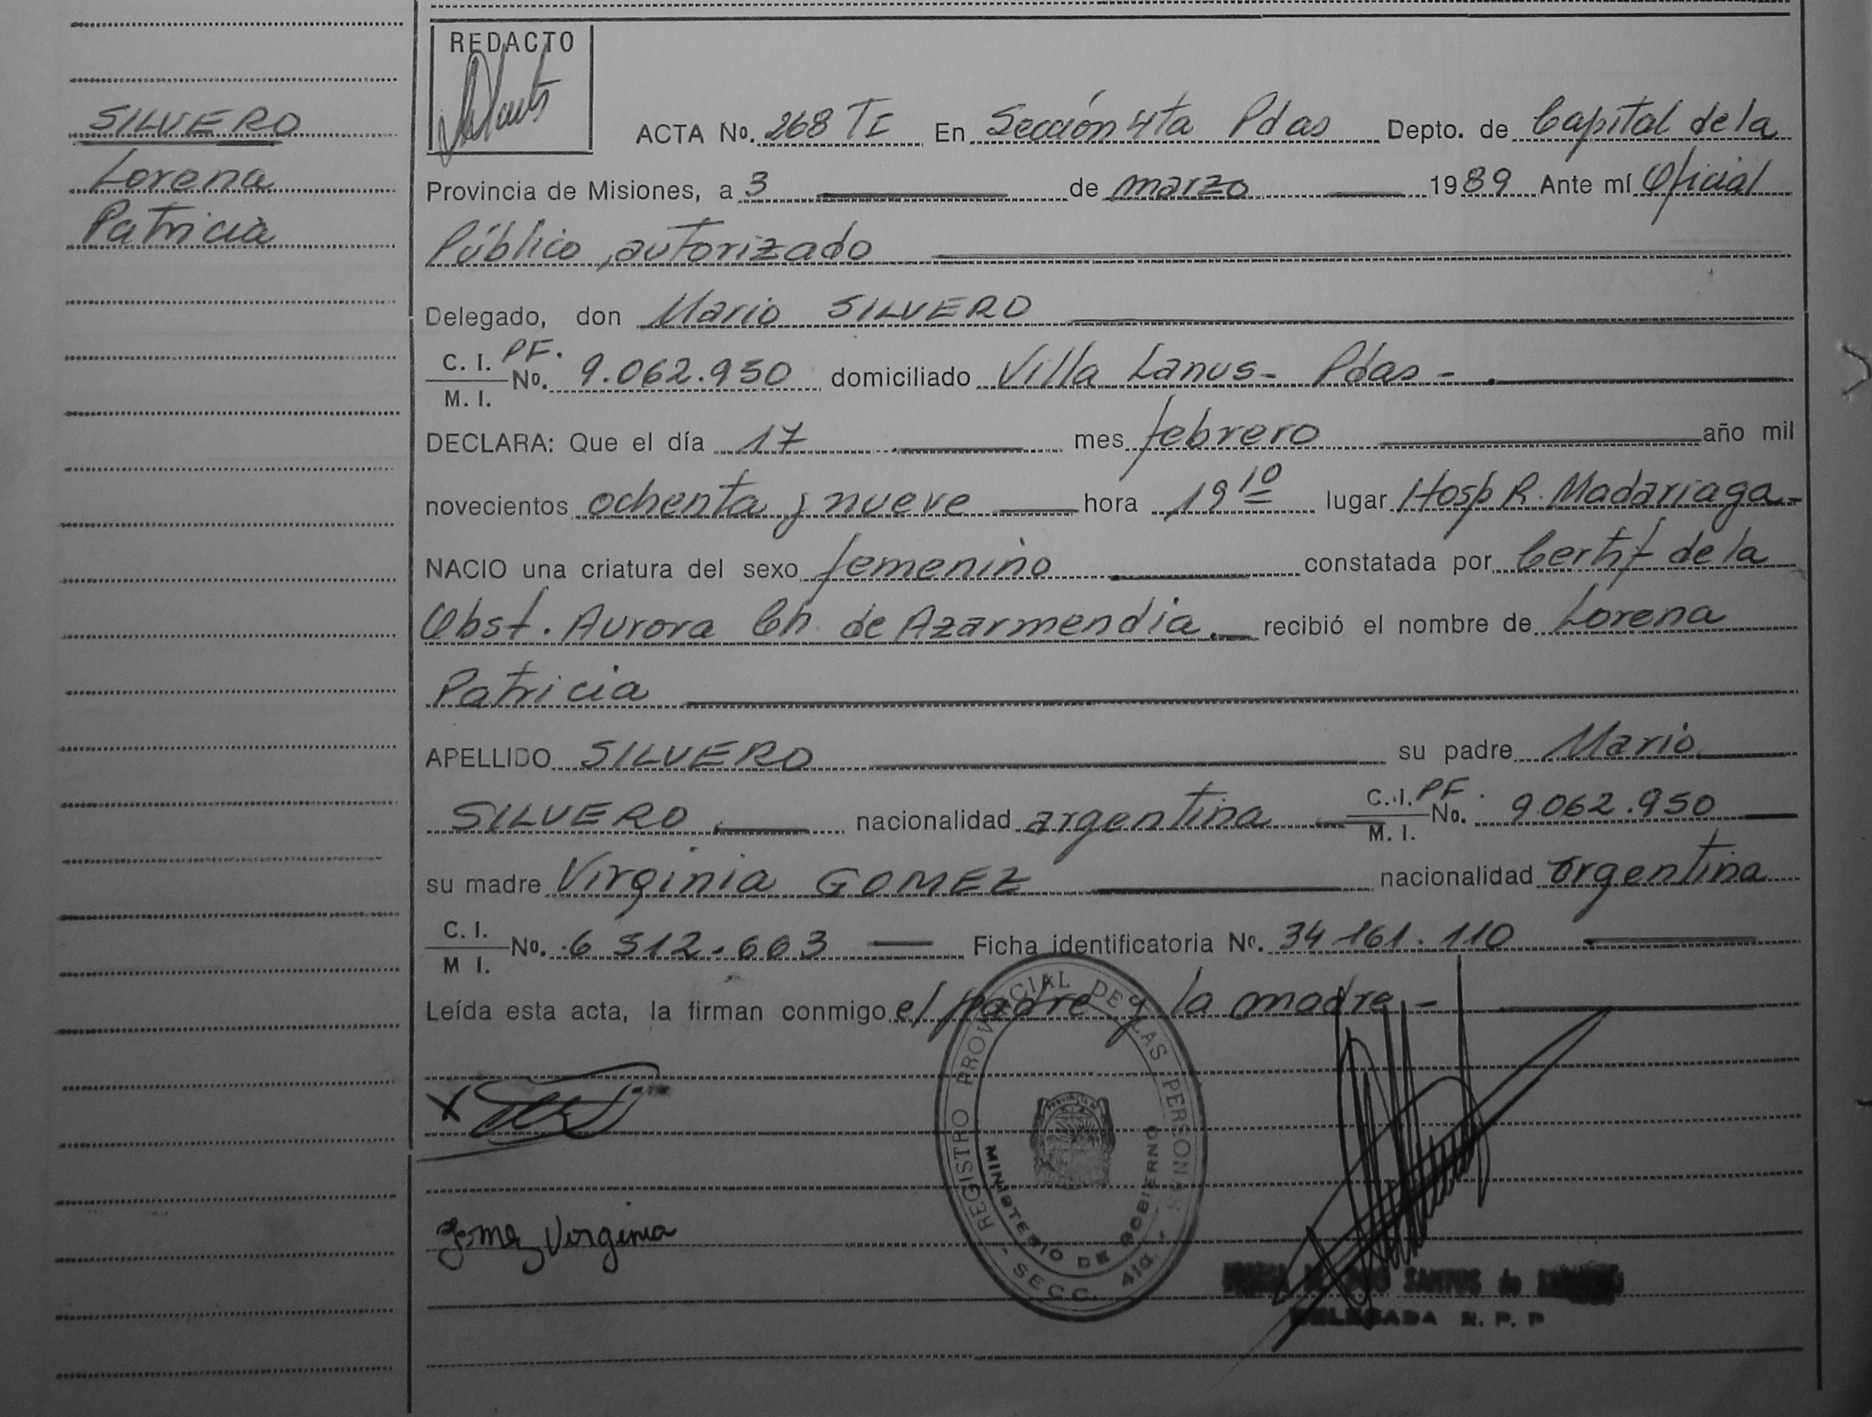 SILVERO
Lorena
Patricia
REDACTO
ACTA No. 268 TI En Sección 4ta Pdas Depto. de Capital de la
Provincia de Misiones, a 3 de marzo 1989 Ante mí Oficial
Público, autorizado
Delegado, don Mario SILVERO
C. I. PF.
M. I. No. 9.062.950 domiciliado Villa Lanus - Pdas -
DECLARA: Que el día 17 mes febrero año mil
novecientos ochenta y nueve hora 19 10 lugar Hosp R. Madariaga -
NACIO una criatura del sexo femenino constatada por Certif de la
Obst. Aurora Ch. de Azarmendia. recibió el nombre de Lorena
Patricia
APELLIDO SILVERO su padre Mario
SILVERO nacionalidad argentina C. I. PF. M. I. No. 9.062.950
su madre Virginia GOMEZ nacionalidad argentina
C. I. M I. No. 6 512.663 Ficha identificatoria No. 34 161.110
Leída esta acta, la firman conmigo el padre y la madre -
REGISTRO PROVINCIAL DE LAS PERSONAS
MINISTERIO DE GOBIERNO
SECC. 4ta.
Gomez Virginia
SANTOS de
DELEGADA R. P. P